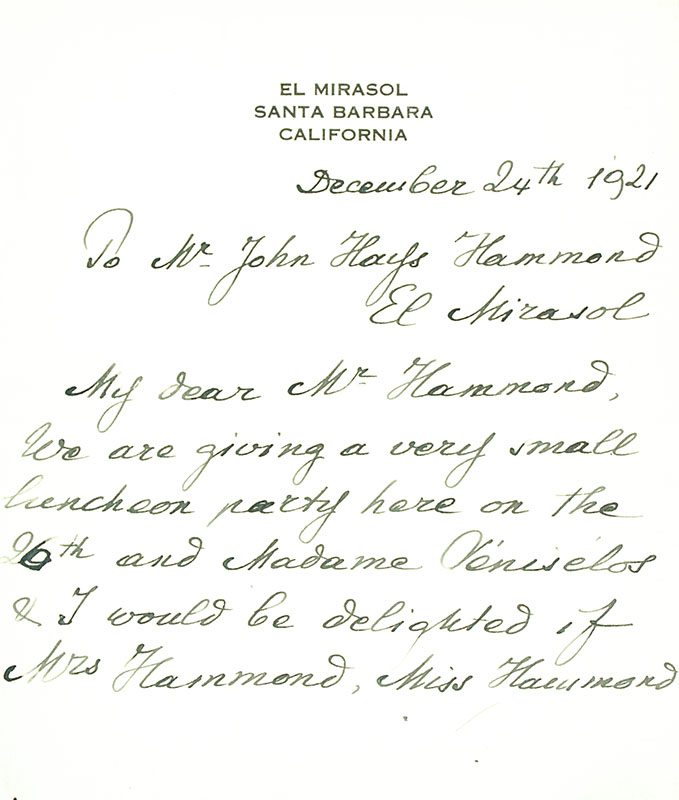 EL MIRASOL
SANTA BARBARA
CALIFORNIA
December 24th 1921
To Mr John Hays Hammond
El Mirasol
My dear Mr Hammond,
We are giving a very small
luncheon party here on the
26th and Madame Vénisélos
& I would be delighted if
Mrs Hammond, Miss Hammond